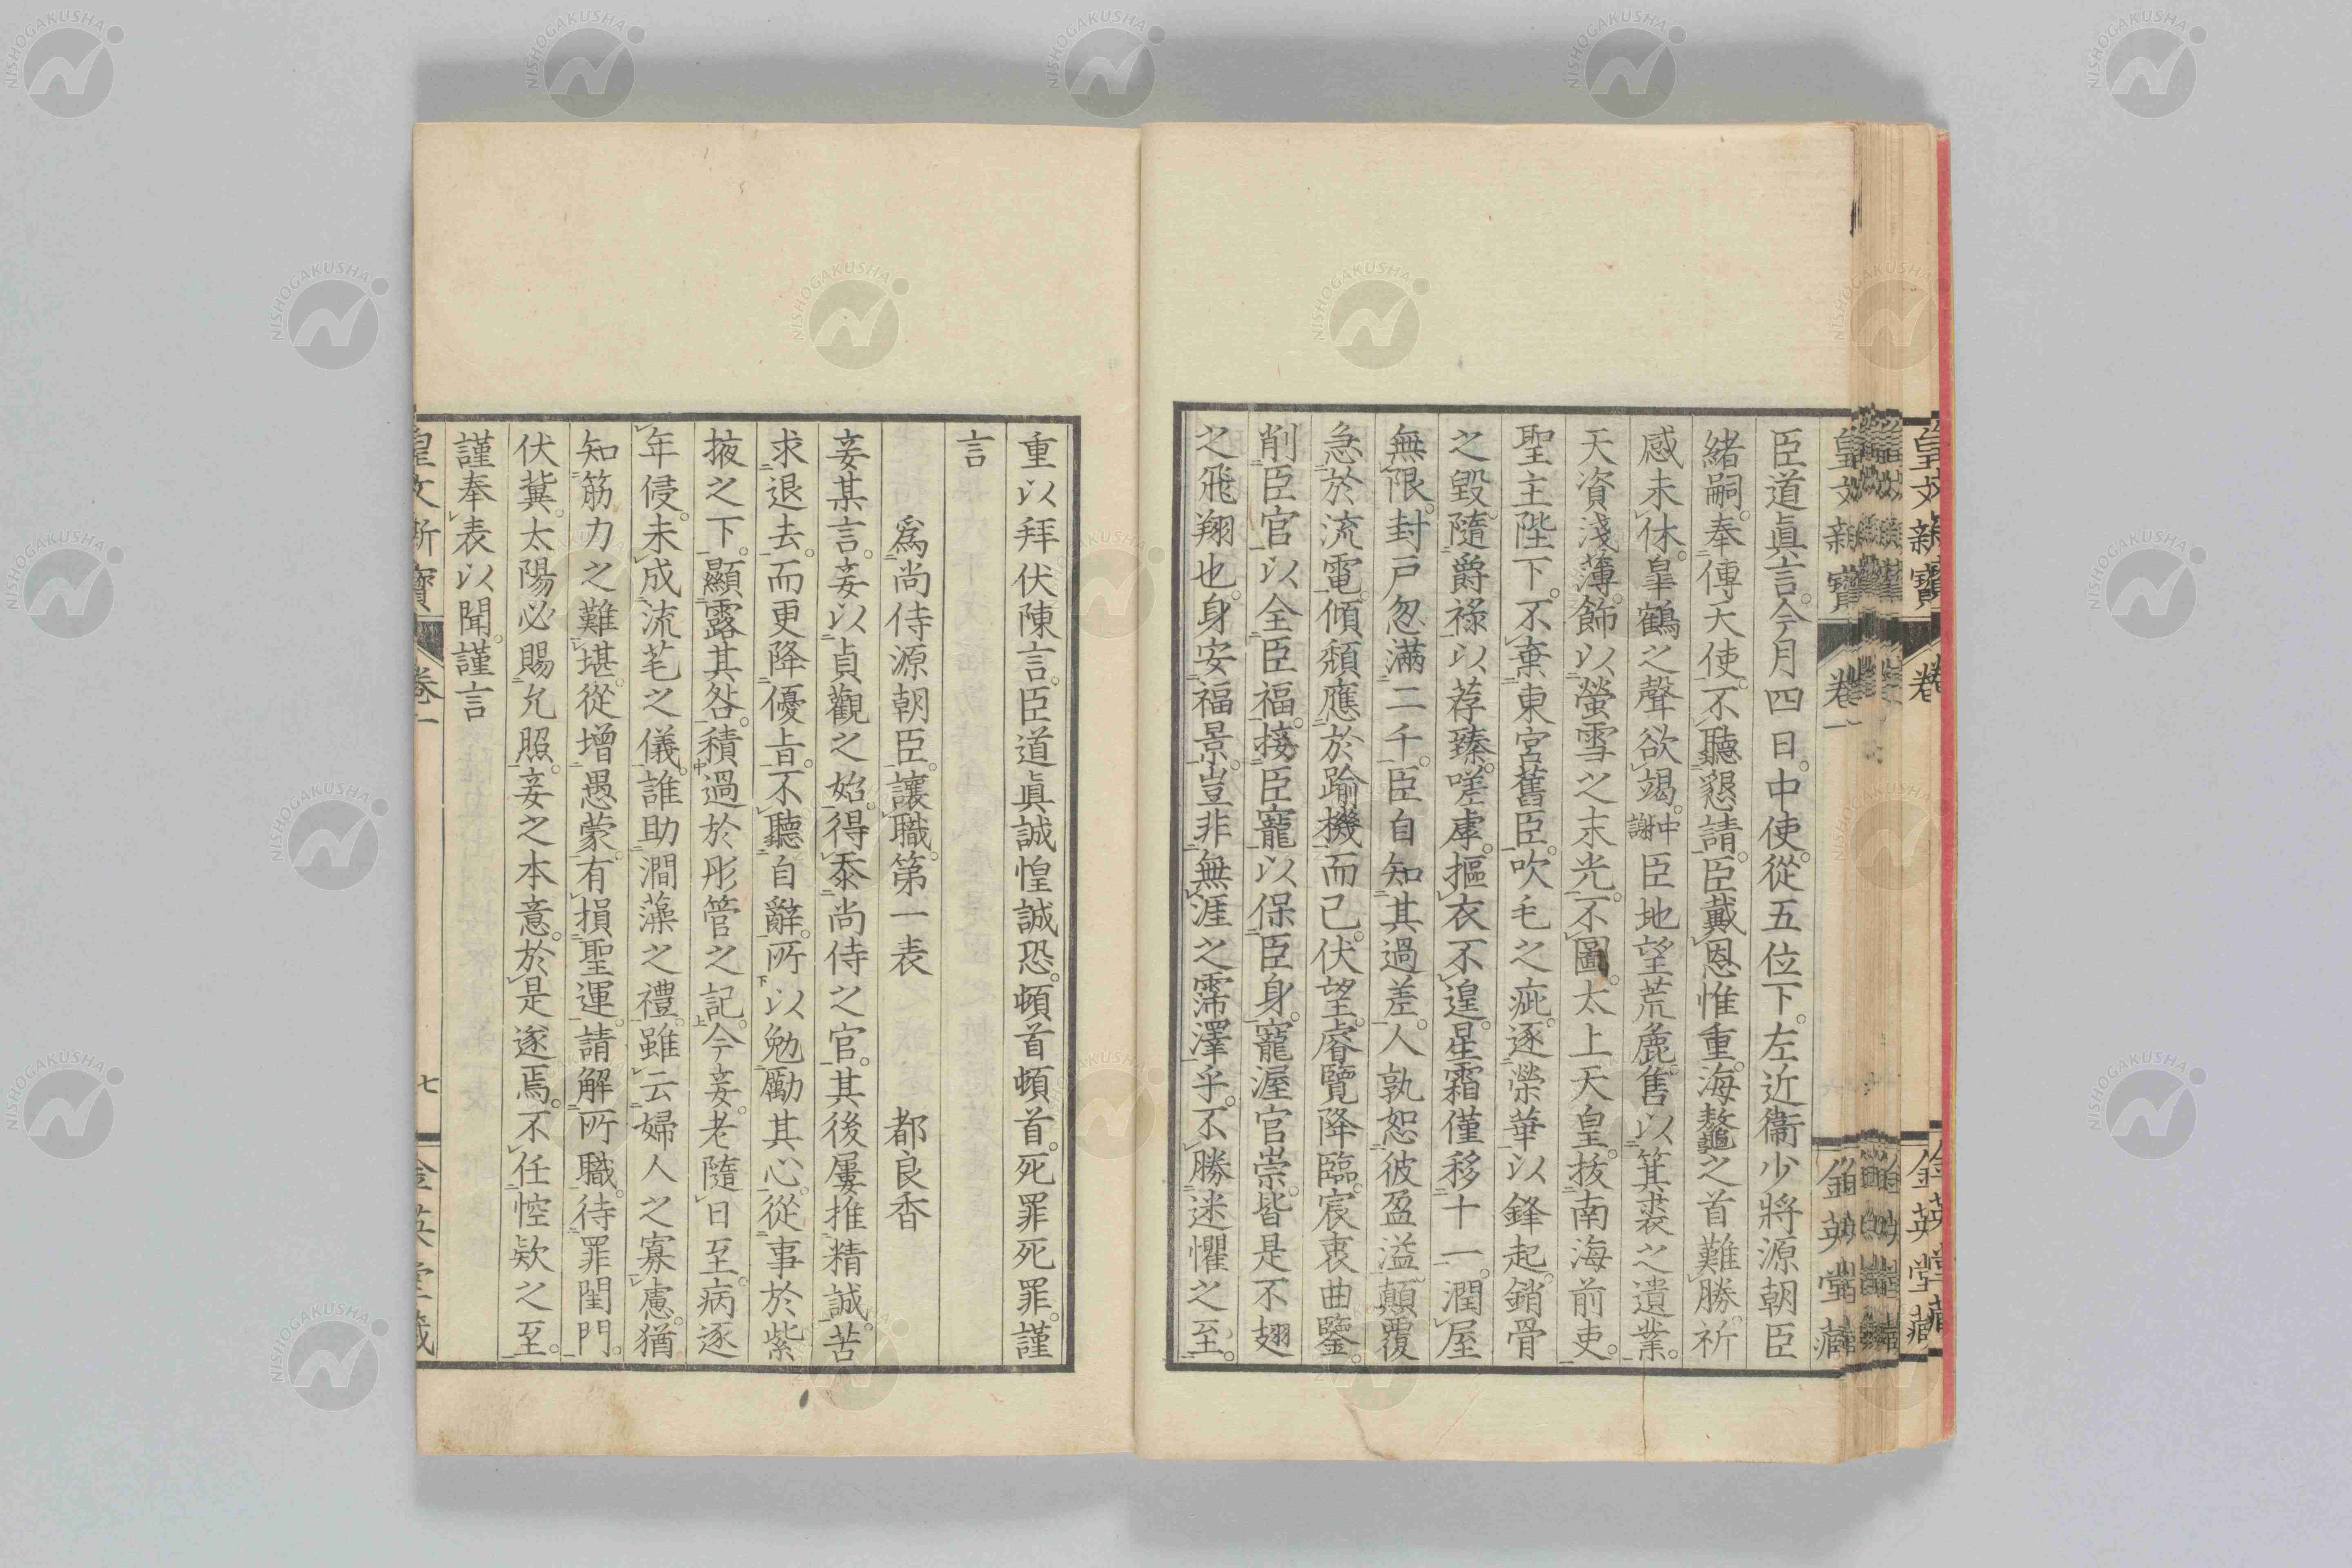 臣道眞言。今月四日。中使。從五位下。左近衞少將源朝臣
緒嗣。奉傳天使。不聽懇請。臣戴恩惟重。海鼇之首難勝。祈
感未休。皐鶴之聲欲竭。中謝臣地望荒麁。售以箕裘之遺業。
天資淺薄。飾以螢雪之末光。不圖。太上天皇。拔南海前吏。
聖主陛下。不棄東宮舊臣。吹毛之疵。逐榮華以鋒起。銷骨
之毀。隨爵祿以荐臻。嗟虖。摳衣不遑。星霜僅移十一。潤屋
無限。封戸忽滿二千。臣自知其過差。人孰恕彼盈溢。顛覆
急於流電。傾頽應於踰機而已。伏望。睿覽降臨。宸衷曲鑒。
削臣官以全臣福。接臣寵以保臣身。寵渥官崇。皆是不翅
之飛翔也。身安福景。豈非無涯之霈澤乎。不勝迷懼之至。
重以拜伏陳言。臣道眞誠惶誠恐。頓首頓首。死罪死罪。謹
言
爲尚侍源朝臣。讓職。第一表 都良香
妾某言。妾以貞觀之始。得忝尚侍之官。其後屢推精誠。苦
求退去。而更降優旨。不聽自辭。所以勉勵其心。從事於紫
掖之下。顯露其咎。積過於彤管之記。今妾。老隨日至。病逐
年侵。未成流芼之儀。誰助澗藻之禮。雖云婦人之寡慮。猶
知筋力之難堪。從增愚蒙。有損聖運。請解所職。待罪閨門。
伏冀。太陽必賜允照。妾之本意。於是遂焉。不任悾欵之至。
謹奉表以聞。謹言
皇文新寶 卷一 七 金英堂藏